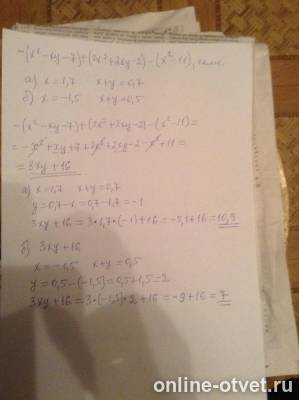 -(x²-xy-7)+(2x²+2xy-2)-(x²-11), если
а) x=1,7 x+y=0,7
б) x=-1,5 x+y=0,5
-(x²-xy-7)+(2x²+2xy-2)-(x²-11)=
=-x²+xy+7+2x²+2xy-2-x²+11=
=3xy+16
а) x=1,7 x+y=0,7
y=0,7-x=0,7-1,7=-1
3xy+16=3*1,7*(-1)+16=-5,1+16=10,9
б) 3xy+16
x=-1,5 x+y=0,5
y=0,5-(-1,5)=0,5+1,5=2
3xy+16=3*(-1,5)*2+16=-9+16=7
online-otvet.ru